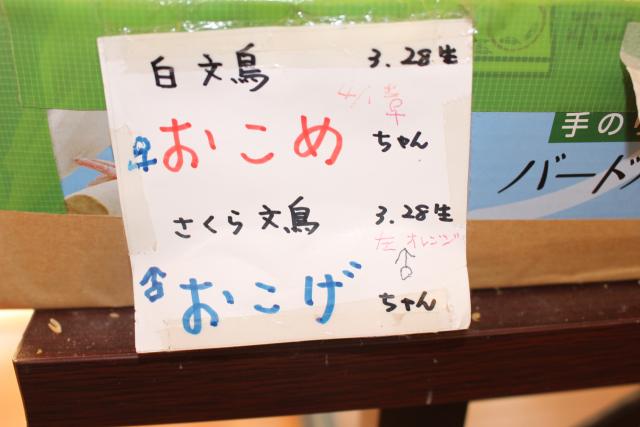 白文鳥 3.28生
おこめ ちゃん
さくら文鳥 3.28生
左 オレンジ
おこげ ちゃん
手の
バード